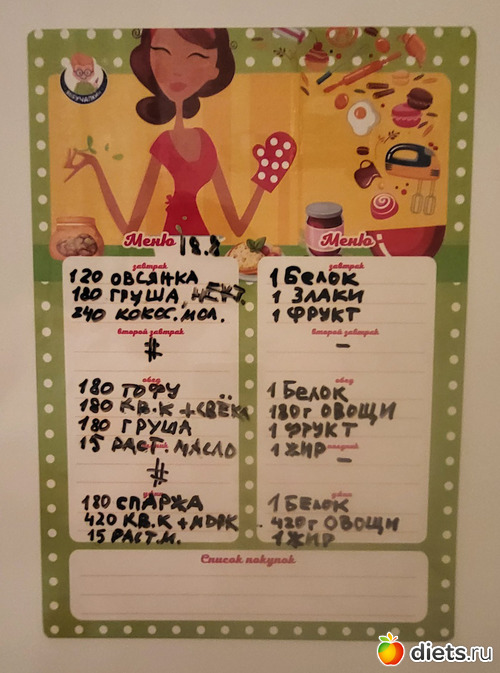 ВЫРУЧАЛКИН
Меню 18.8
завтрак
120 ОВСЯНКА
180 ГРУША, НЕКТ.
240 КОКОС. МОЛ.
второй завтрак
#
обед
180 ТОФУ
180 КВ.К + СВЁКЛ
180 ГРУША
15 РАСТ. МАСЛО
#
ужин
180 СПАРЖА
420 КВ.К + МОРК
15 РАСТ.М.
Меню
завтрак
1 БЕЛОК
1 ЗЛАКИ
1 ФРУКТ
второй завтрак
–
обед
1 БЕЛОК
180г ОВОЩИ
1 ФРУКТ
1 ЖИР –
полдник
ужин
1 БЕЛОК
420г ОВОЩИ
1 ЖИР
Список покупок
diets.ru